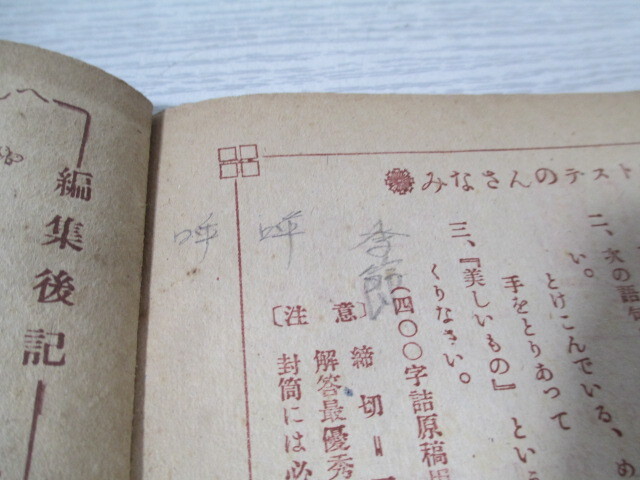 みなさんのテスト
二、次の語句
い。
とけこんでいる、め
手をとりあって
三、『美しいもの』とい
くりなさい。
(四〇〇字詰原稿用
季節
〔注意〕締切＝
解答最優秀
封筒には必
呼
呼
編集後記